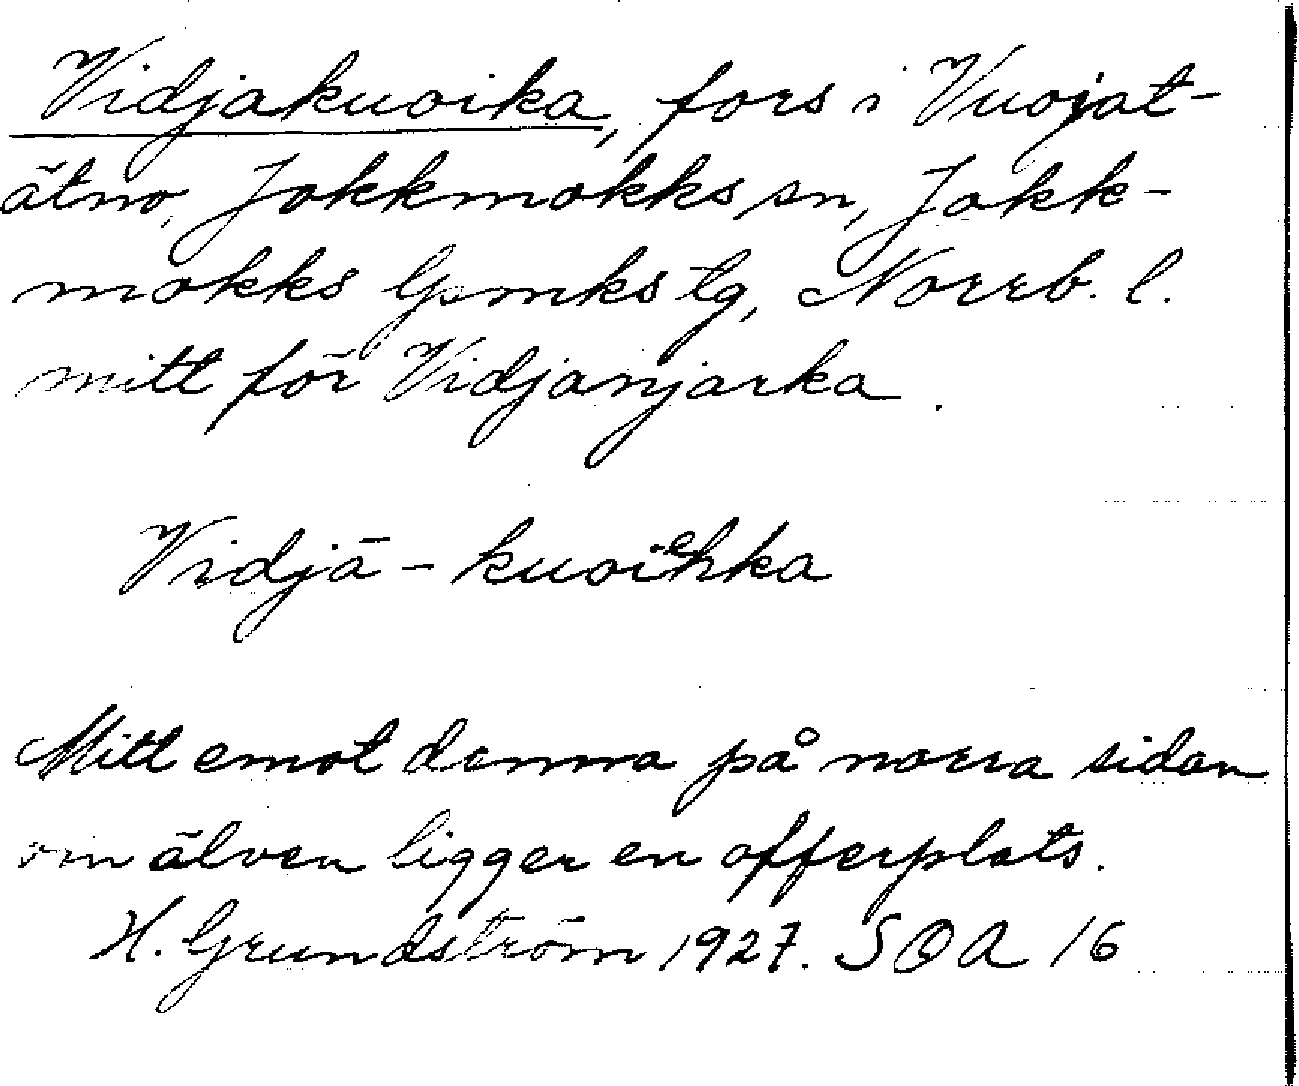 Vidjakuoika, fors i Vuojat-
ätno, Jokkmokks sn, Jokk-
mokks lpmks tg, Norrb. l.
mitt för Vidjanjarka.
Vidjā - kuoiehka
Mitt emot denna på norra sidan
om älven ligger en offerplats.
H. Grundström 1927. SOA 16